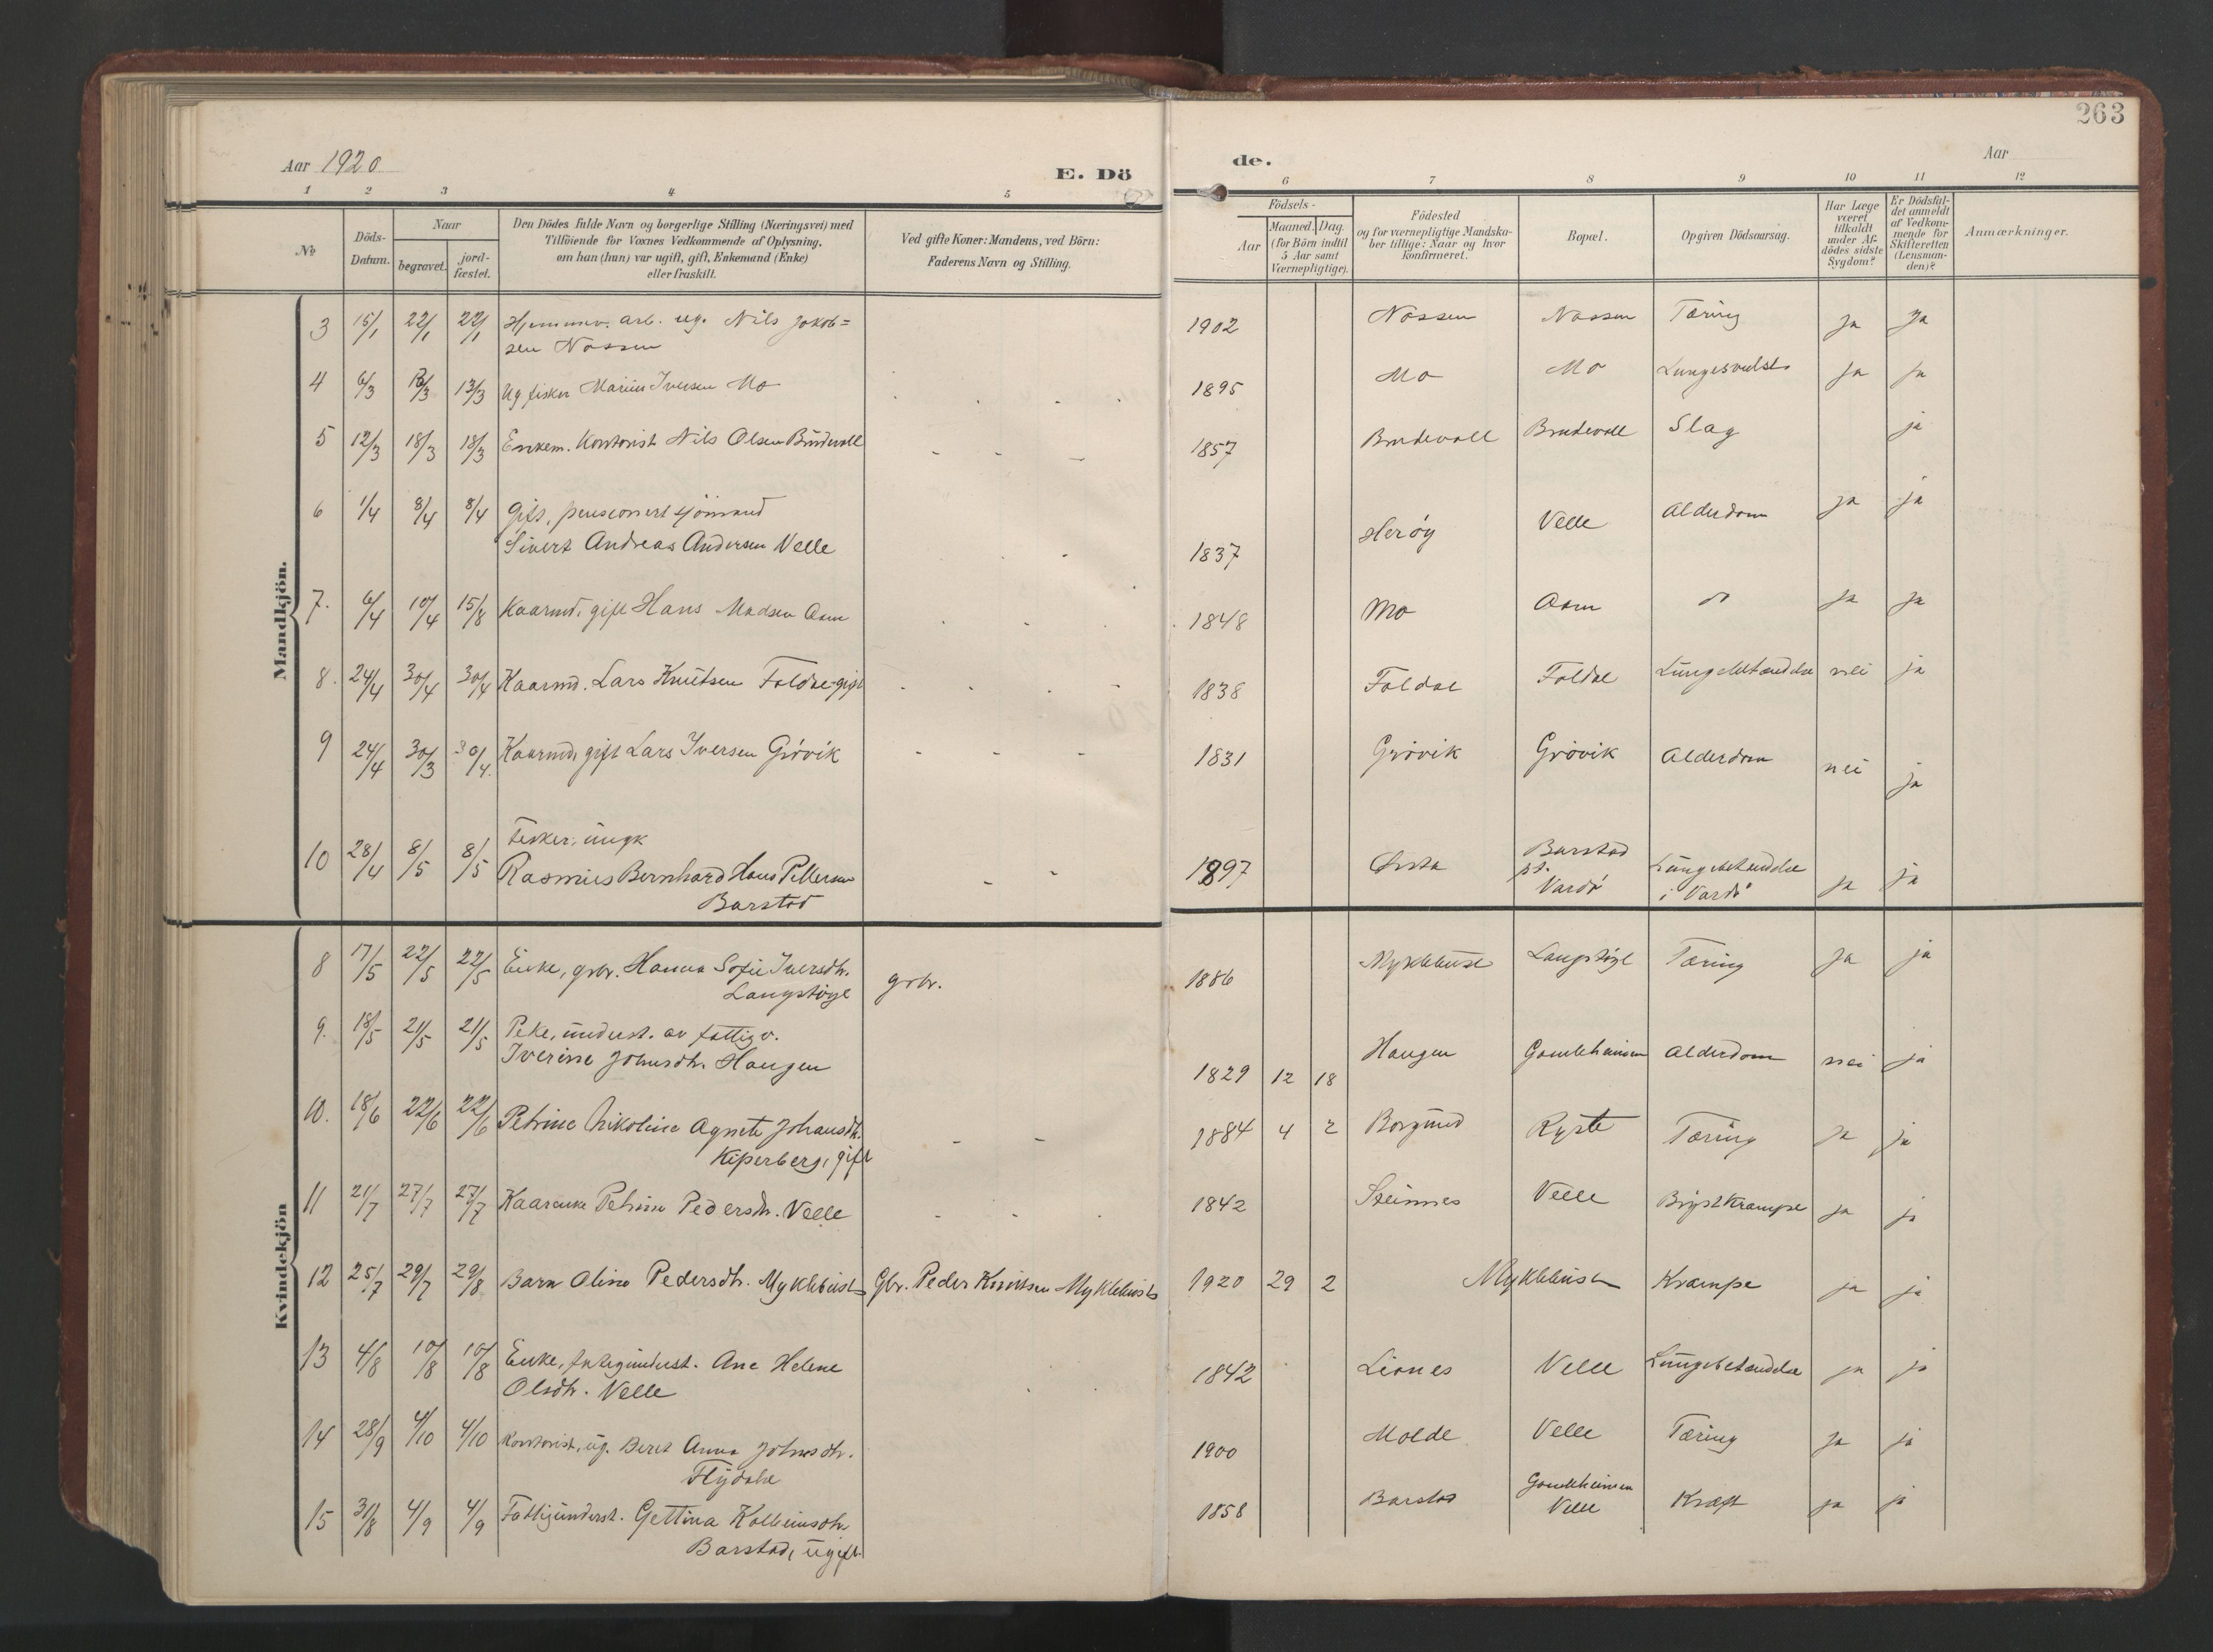 263
Aar 1920
E. Dö
de.
Aar
1 2 3 4 5 6 7 8 9 10 11 12
№
Döds-
Datum.
Naar
begravet.
jord-
fæstet.
Den Dödes fulde Navn og borgerlige Stilling (Næringsvei) med
Tilföiende for Voxnes Vedkommende af Oplysning,
om han (hun) var ugift, gift, Enkemand (Enke)
eller fraskilt.
Ved gifte Koner: Mandens, ved Börn:
Faderens Navn og Stilling.
Födsels-
Aar
Maaned. Dag.
(for Börn indtil
5 Aar samt
Værnepligtige).
Födested
og for værnepligtige Mandska-
ber tillige: Naar og hvor
konfirmeret.
Bopæl.
Opgiven Dödsaarsag.
Har Læge
været
tilkaldt
under Af-
dödes sidste
Sygdom?
Er Dödsfal-
det anmeldt
af Vedkom-
mende for
Skifteretten
(Lensman-
den)?
Anmærkninger.
Mandkjön.
3 15/1 22/1 22/1 Hjemmev. arb. ug. Nils Jakob= 1902 Nossen Nossen Tæring ja ja
sen Nossen
4 6/3 13/3 13/3 Ug fisker Marius Iversen Mo 1895 Mo Mo Lungesvulst ja ja
5 12/3 18/3 18/3 Enkem. Kontorist Nils Olsen Brudevoll - - - 1857 Brudevoll Brudevoll Slag ja
6 1/4 8/4 8/4 Gift, pensionert sjömand
Sivert Andreas Andersen Velle 1837 Herøy Velle Alderdom ja ja
7. 6/4 10/4 15/8 Kaarmd, gift Hans Madsen Aam 1848 Mo Aam do ja ja
8. 24/4 30/4 30/4 Kaarmd. Lars Knutsen Foldal gift 1838 Foldal Foldal Lungebetændelse nei ja
9 24/4 30/3 30/4. Kaarmd, gift Lars Iversen Grøvik - - - 1831 Grøvik Grøvik Alderdom nei ja
10 28/4 8/5 8/5 Fisker, ungk
Rasmus Bernhard Hans Pettersen - - 1897 Ørsta Barstad
pt.
Vardø Lungebetændelse
i Vardø ja ja
Barstad
Kvindekjön
8 17/5 22/5 22/5 Enke, grbr. Hanna Sofie Iversdtr. grbr. 1886 Myklebust Langstøyl Tæring ja ja
Langstøyl
9. 18/5 21/5 21/5 Pike, underst. av fattigv.
Iverine Johnsdtr. Haugen 1829 12 18 Haugen Gamleheimen Alderdom nei ja
10. 18/6 22/6 22/6 Petrine Nikoline Agnete Johansdtr. - - 1884 4 2 Borgund Ryste Tæring ja ja
Kiperberg, gift
11 21/7 27/7 27/7 Kaarenke Petrine Pedersdtr. Velle - 1842 Steinnes Velle Brystkrampe ja ja
12 25/7 29/7 29/8 Barn Oline Pedersdtr. Myklebust Gbr. Peder Knutsen Myklebust 1920 29 2 Myklebust Krampe ja ja
13 4/8 10/8 10/8 Enke, fattigunderst. Ane Helene 1842 Liones Velle Lungebetændelse ja ja
Olsdtr. Velle
14 28/9 4/10 4/10 Kontorist, ug. Beret Anna Johnsdtr. 1900 Molde Velle Tæring ja ja
Flydahl
15 31/8 4/9 4/9 Fattigunderst. Gettina Kolbeinsdtr. 1858 Barstad Gamleheimen
Velle Kræft ja ja
Barstad, ugift